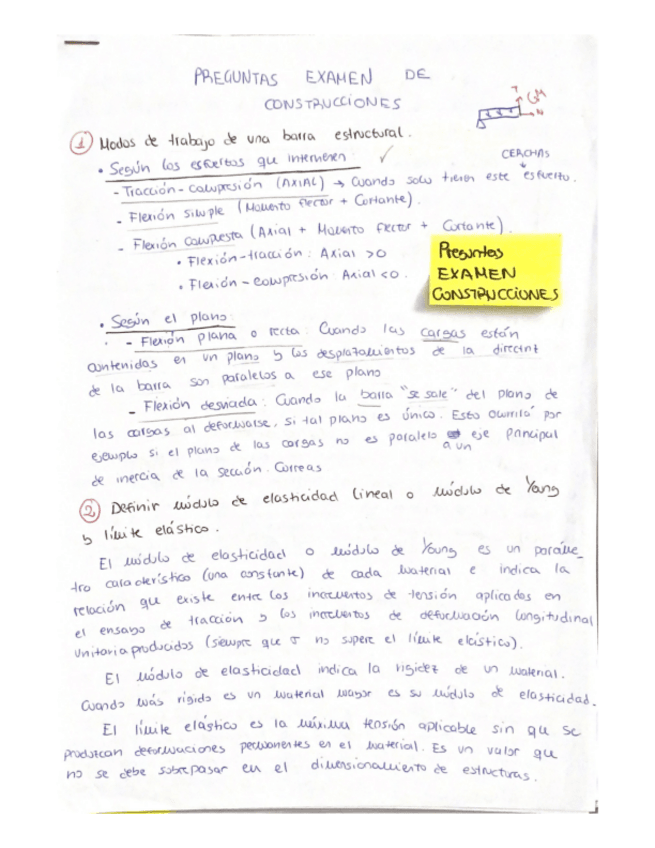 PREGUNTAS EXAMEN DE
CONSTRUCCIONES
1 Modos de trabajo de una barra estructural.
• Según los esfuerzos que intervienen: ✓
CERCHAS
- Tracción - compresión (AXIAL) → Cuando solo tienen este esfuerzo.
- Flexión simple (Momento flector + Cortante).
- Flexión compuesta (Axial + Momento flector + Cortante)
• Flexión-tracción: Axial >0
• Flexión - compresión: Axial <0.
Preguntas
EXAMEN
CONSTRUCCIONES
• Según el plano:
- Flexión plana o recta: Cuando las cargas están
contenidas en un plano y los desplazamientos de la directriz
de la barra son paralelos a ese plano
- Flexión desviada: Cuando la barra "se sale" del plano de
las cargas al deformarse, si tal plano es único. Esto ocurrirá por
ejemplo si el plano de las cargas no es paralelo a un eje principal
de inercia de la sección. Correas
2 Definir módulo de elasticidad lineal o módulo de Young
y límite elástico.
El módulo de elasticidad o módulo de Young es un paráme_
tro característico (una constante) de cada material e indica la
relación que existe entre los incrementos de tensión aplicados en
el ensayo de tracción y los incrementos de deformación longitudinal
unitaria producidos (siempre que σ no supere el límite elástico).
El módulo de elasticidad indica la rigidez de un material.
Cuando más rígido es un material mayor es su módulo de elasticidad.
El límite elástico es la máxima tensión aplicable sin que se
produzcan deformaciones permanentes en el material. Es un valor que
no se debe sobrepasar en el dimensionamiento de estructuras.